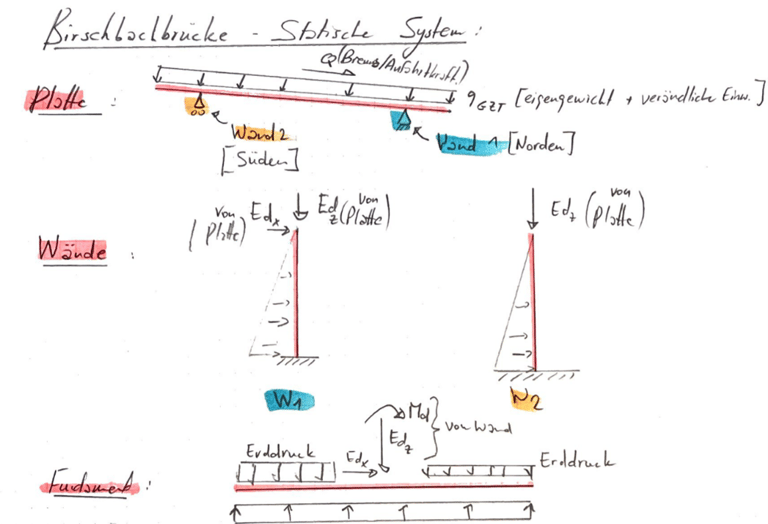 Birschbachbrücke - Statische System:
Q(Brems/Anfahrtkraft)
Platte: qGZT [eigengewicht + veründliche Einw.]
Wand 2
[Süden]
Wand 1 [Norden]
(von Platte) Edx Edz (von Platte)
Edz (von Platte)
Wände:
W1
W2
Md
Edz
von Wand
Erddruck Edx Erddruck
Fundament: